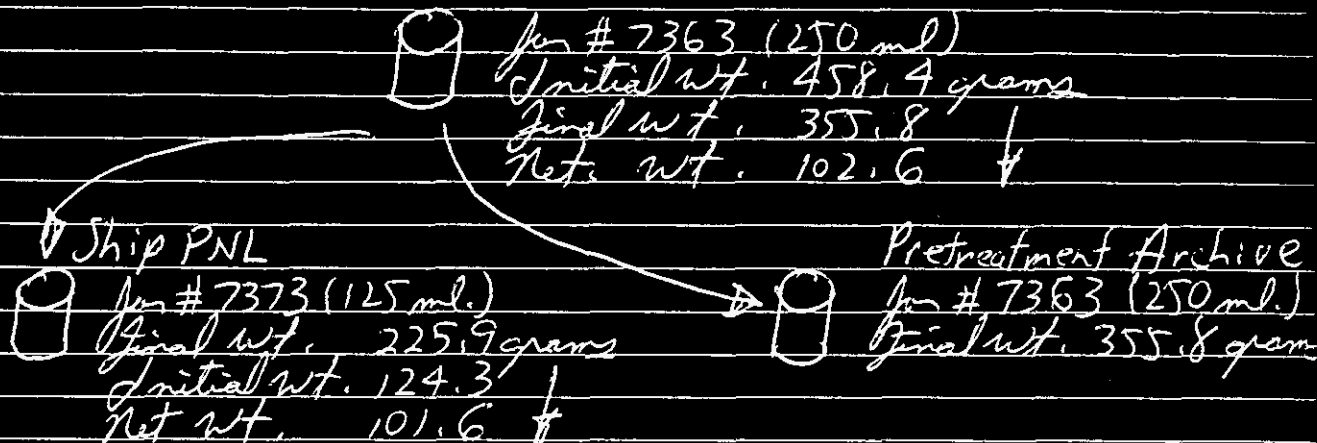 Jar # 7363 (250 ml)
Initial wt. 458.4 grams
Final wt. 355.8
Net. wt. 102.6
Ship PNL
Jar # 7373 (125 ml.)
Final wt. 225.9 grams
Initial wt. 124.3
Net wt. 101.6
Pretreatment Archive
Jar # 7363 (250 ml.)
Final wt. 355.8 gram